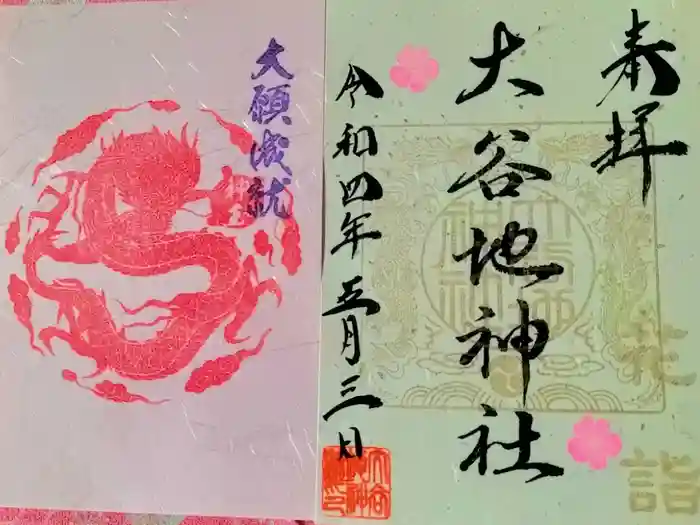 奉拝
花詣
大谷地神社
令和四年五月三日
大願成就